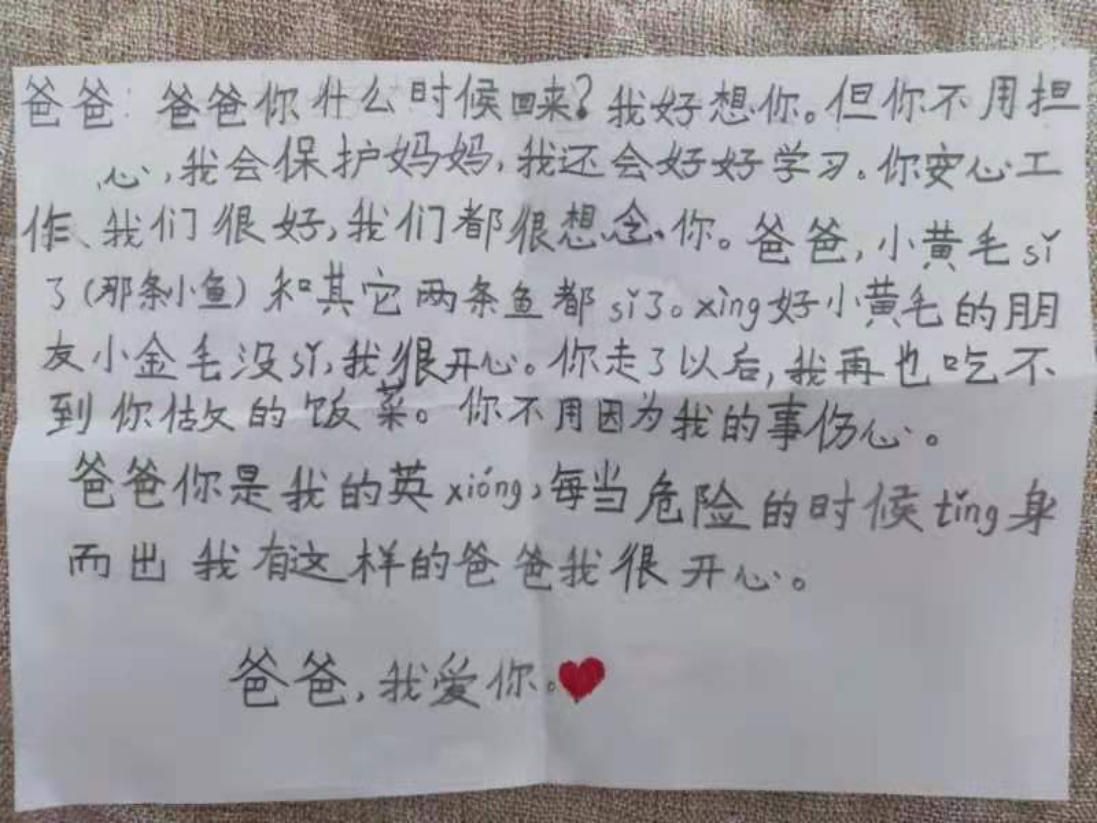 爸爸：爸爸你什么时候回来？我好想你。但你不用担
心，我会保护妈妈，我还会好好学习。你安心工
作、我们很好，我们都很想念你。爸爸，小黄毛sǐ
了（那条小鱼）和其它两条鱼都sǐ了。xìng好小黄毛的朋
友小金毛没sǐ，我很开心。你走了以后，我再也吃不
到你做的饭菜。你不用因为我的事伤心。
爸爸你是我的英xióng，每当危险的时候tǐng身
而出 我有这样的爸爸我很开心。
爸爸，我爱你。